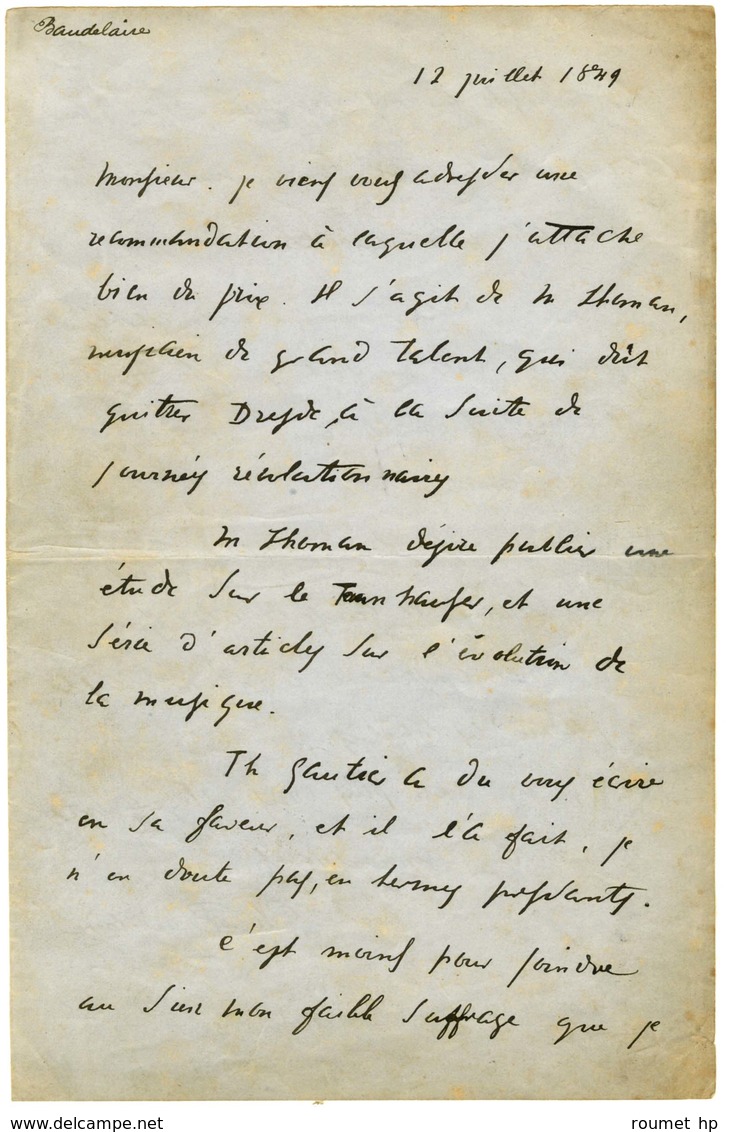 Baudelaire
12 juillet 1849
Monsieur. je viens vous adresser une
recommandation à laquelle j'attache
bien du prix. Il s'agit de M Shoman,
musicien de grand talent, qui dût
quitter Dresde, à la suite de
journées révolutionnaires
M Shoman désire publier une
étude sur le Tannhauser, et une
série d'articles sur l'évolution de
la musique.
Th Gautier a du vous écrire
en sa faveur, et il l'a fait, je
n'en doute pas, en termes pressants.
C'est moins pour joindre
au sien mon faible suffrage que je
www.delcampe.net
roumet hp